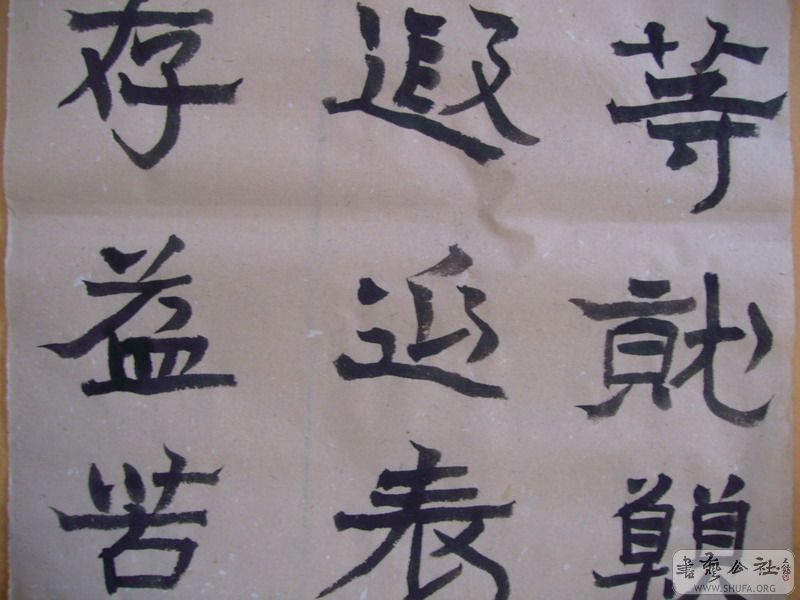 等就
遐表
存益苦
書藝公社
WWW.SHUFA.ORG